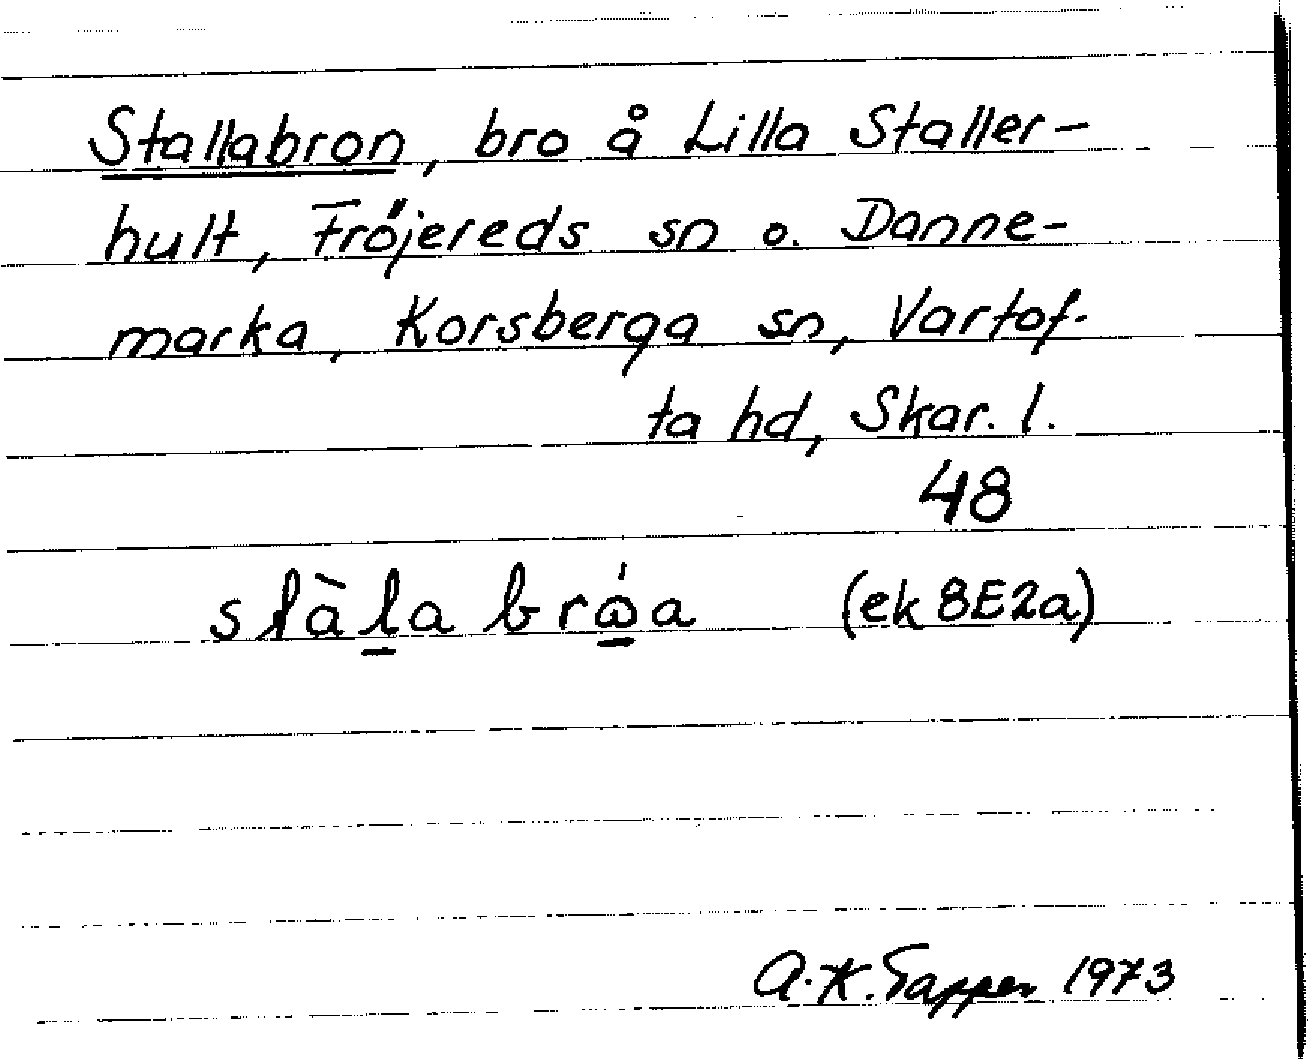 Stallabron, bro å Lilla Staller-
hult, Fröjereds sn o. Danne-
marka, Korsberga sn, Vartof-
ta hd, Skar. l.
48
(ek 8E2a)
A.K. 1973